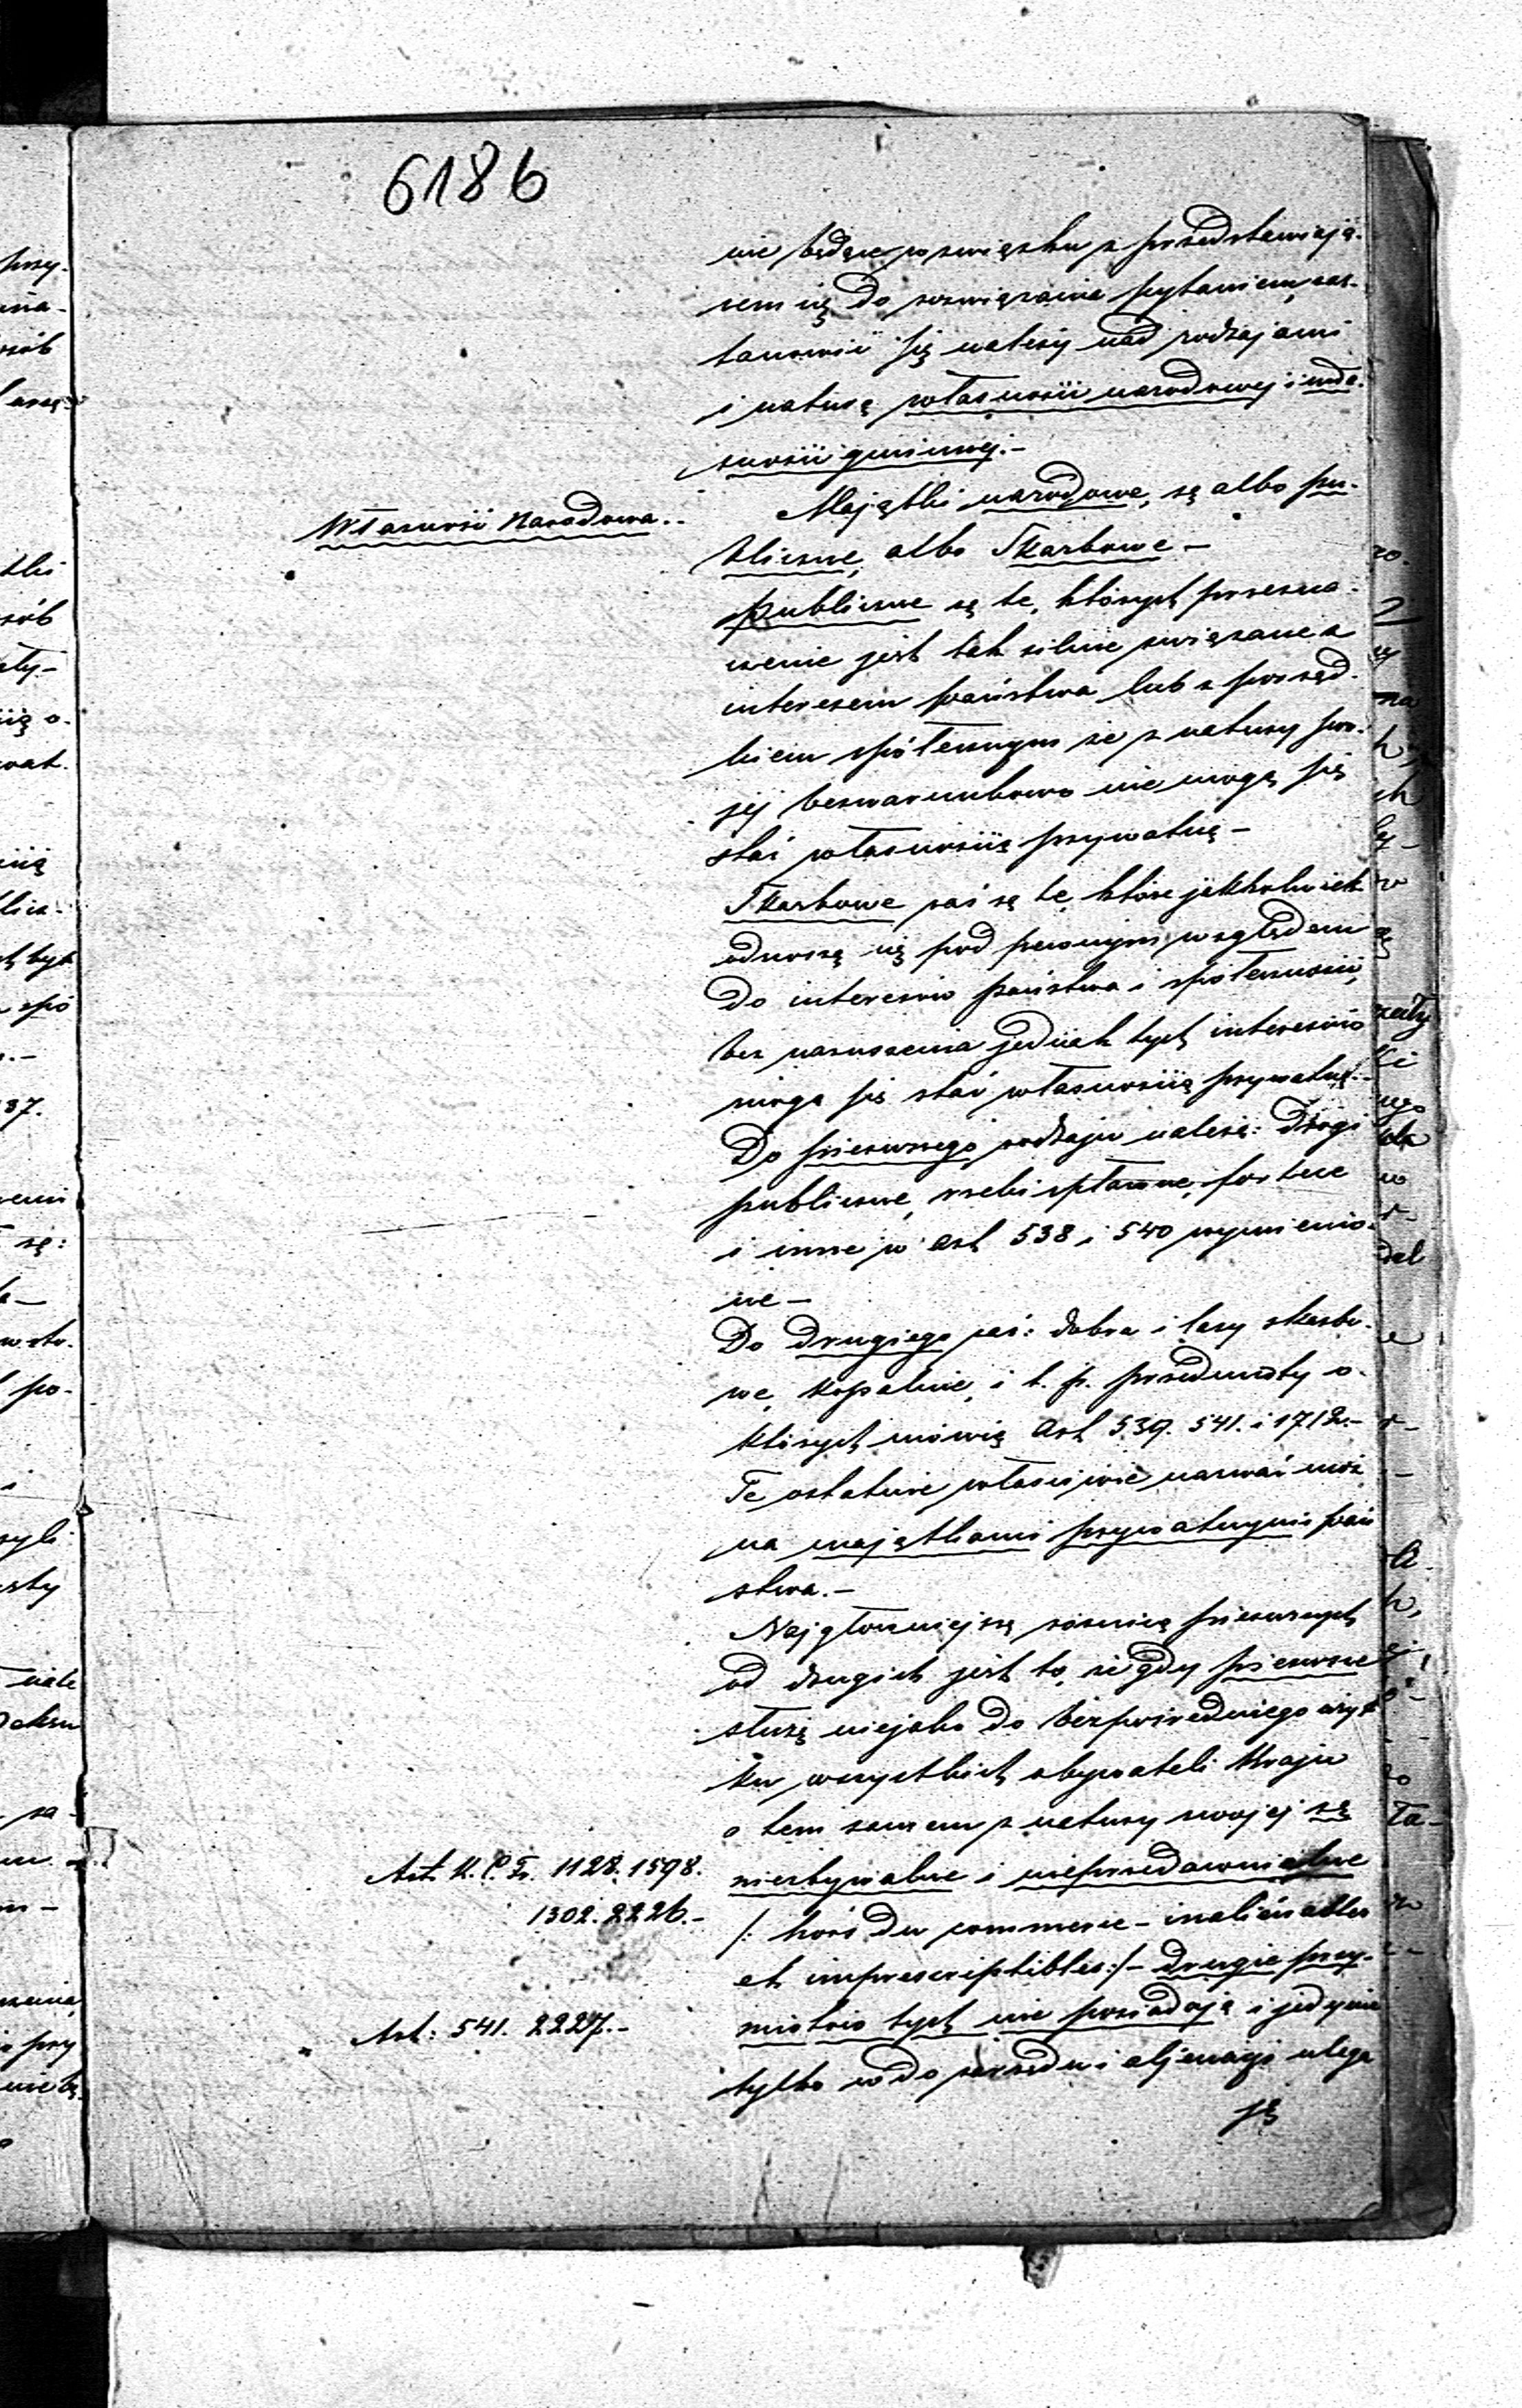 6186
nie będące w związku z przedstawiają-
cem się do rozwiązania pytaniem, zas-
tanowić się należy nad rodzajami
i naturą własności narodowej i wła-
sności gminnej.-
Własność Narodowa.-
Majątki narodowe, są albo pu-
bliczne, albo Skarbowe -
publiczne są te, których przezna-
czenie jest tak silnie związane z
interesem państwa lub z porząd-
kiem społecznym że z natury swo-
jej bezwarunkowo nie mogą się
stać własnością prywatną -
Skarbowe zaś są te, które jakkolwiek
odnoszą się pod pewnym względem
do interesów państwa i społeczności,
bez naruszenia jednak tych interesów
mogą się stać własnością prywatną.-
Do pierwszego rodzaju należą: drogi
publiczne, rzeki spławne, fortece
i inne w art 538 i 540 wymienio-
ne -
Do drugiego zaś: dobra i lasy skarbo-
we, kopalnie, i t. p. przedmioty o
których mówią art 539. 541. i 1712.-
Te ostatnie właściwie nazwać moż
na majątkami prywatnymi pań
stwa.-
Najgłówniejszą różnicą pierwszych
od drugich jest to, że gdy pierwsze
służą niejako do bezpośredniego użyt
ku wszystkich obywateli Kraju
a tem samem z natury swojej są
Art. K. C. Fr. 1128. 1598.
niezbywalne i nieprzedawnialne
1302. 2226.-
/: hors du commerce - inaliénables
et imprescriptibles:/ - drugie przy-
Art: 541. 2227.-
miotów tych nie posiadają i jedynie
tylko co do sprzedaży i aljenacji ulega
ją